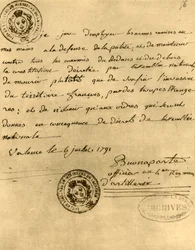 je jure d'employer les armes remises en
mes mains à la défense de la patrie, et de maintenir
contre tous les ennemis du dedans et du dehors
la constitution décrétée par l'assemblée nationale
de mourir plutôt que de souffrir l'invasion
du territoire français par des troupes étrangè-
res, et de n'obéir qu'aux ordres qui seront
donnés en conséquence des décrets de l'assemblée
nationale
Valence le 6 juillet 1791
Buonaparte
officier au 4me Régiment
d'artillerie
ARCHIVES